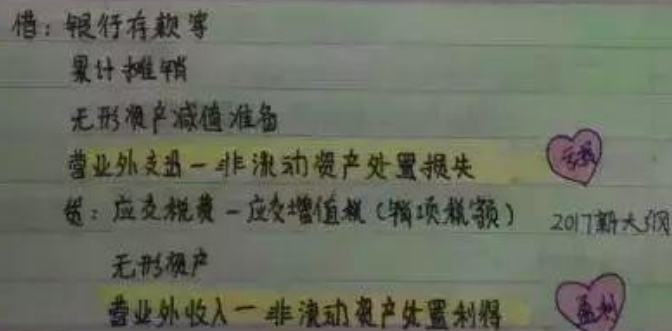 借：银行存款等
累计摊销
无形资产减值准备
营业外支出－非流动资产处置损失 亏损
贷：应交税费－应交增值税（销项税额） 2017新大纲
无形资产
营业外收入－非流动资产处置利得 盈利